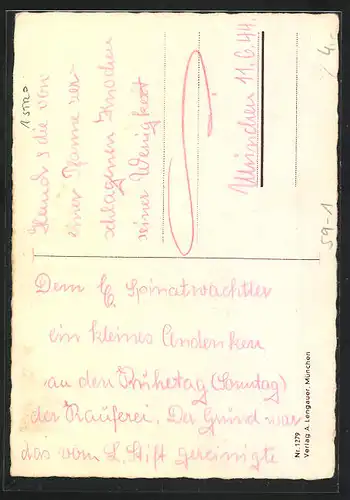 Dem E. Spinatwachtler
ein kleines Andenken
an den Ruhetag (Sonntag)
der Rauferei. Der Grund war
das vom L. Stift gereinigte
Hand & die von
einer Panne zer-
schlagenen Knochen
seiner Wenigkeit
München 11.6.44.
Nr. 1279
Verlag A. Lengauer, München
59-1